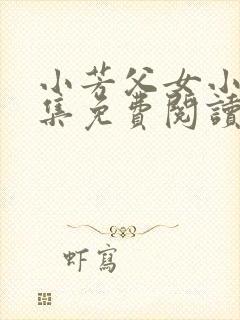 小芳父女小
集免費閱讀
虾寫